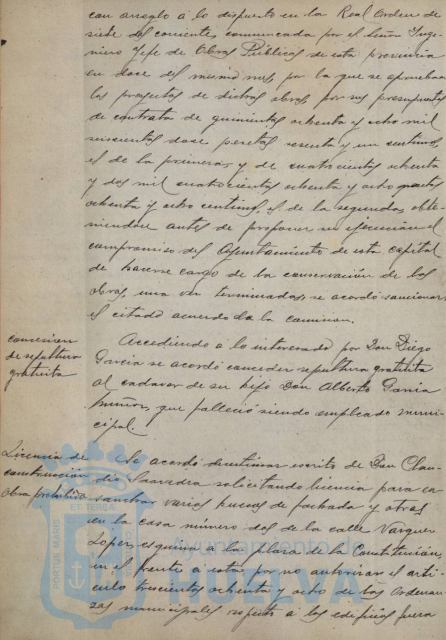 con arreglo á lo dispuesto en la Real Orden de
siete del corriente, comunicada por el Señor Inge-
niero Jefe de Obras Públicas de esta provincia
en doce del mismo mes, por la que se aprueban
los proyectos de dichas obras, por sus presupuestos
de contrata de quinientas ochenta y ocho mil
seiscientas doce pesetas sesenta y un centimos,
el de la primera, y de cuatrocientas ochenta
y dos mil cuatrocientas ochenta y ocho pesetas
ochenta y ocho centimos, el de la segunda, obte-
niendose antes de proponer su ejecución el
compromiso del Ayuntamiento de esta capital
de hacerse cargo de la conservación de las
obras, una vez terminadas, se acordó sancionar
el citado acuerdo de la comision.
concesion
de sepultura
gratuita
Accediendo á lo interesado por Don Diego
Garcia se acordó conceder sepultura gratuita
al cadaver de su hijo Don Alberto Garcia
Muñoz, que falleció siendo empleado muni-
cipal.
Licencia de
construcción
obra prohibida
Se acordó desestimar escrito de Don Clau-
dio Saavedra solicitando licencia para en
sanchar varios huecos de fachada y otras
en la casa número dos de la calle Vazquez
Lopez, esquina a la plaza de la Constitución,
en el frente á esta, por no autorizar el arti-
culo trescientos ochenta y ocho de las Ordenan-
zas municipales respecto á los edificios fuera
PORTUS MARIS
ET TERRÆ
Ayuntamiento de
HUELVA